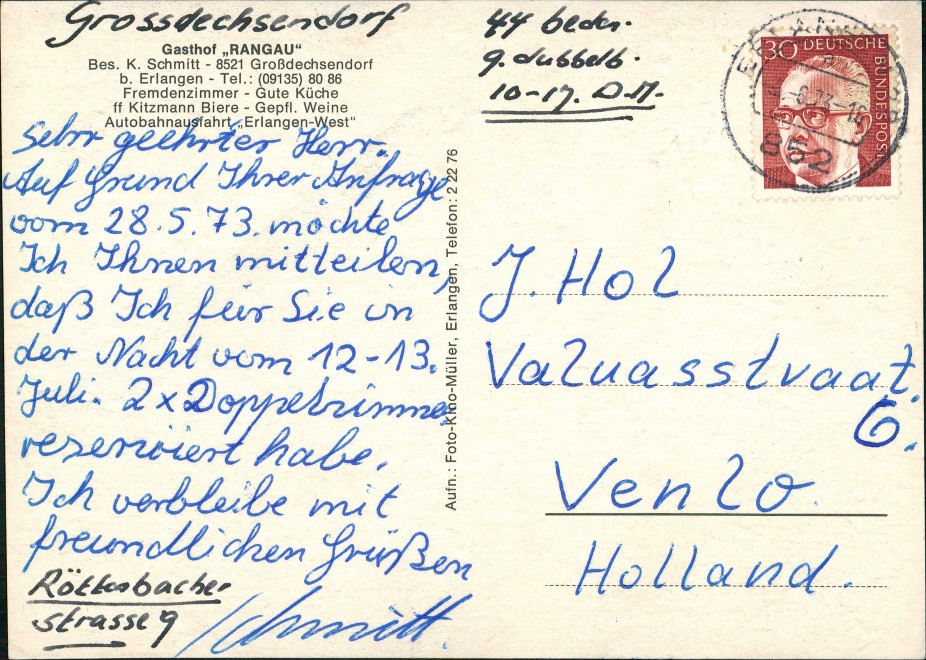 Grossdechsendorf
Gasthof „RANGAU“
Bes. K. Schmitt - 8521 Großdechsendorf
b. Erlangen - Tel.: (09135) 80 86
Fremdenzimmer - Gute Küche
ff Kitzmann Biere - Gepfl. Weine
Autobahnausfahrt „Erlangen-West“
Sehr geehrter Herr.
Auf Grund Ihrer Anfrage
vom 28.5.73. möchte
Ich Ihnen mitteilen,
daß Ich für Sie in
der Nacht vom 12-13.
Juli. 2x Doppelzimmer
reserviert habe.
Ich verbleibe mit
freundlichen Grüßen
Schmitt.
Röttenbacher
strasse 9
Aufn.: Foto-Kino-Müller, Erlangen, Telefon: 2 22 76
44 bedden.
9. dubbelb.
10-17. D.M.
30 DEUTSCHE
BUNDESPOST
852
J. Hol
Valuasstraat.
6.
Venlo.
Holland.